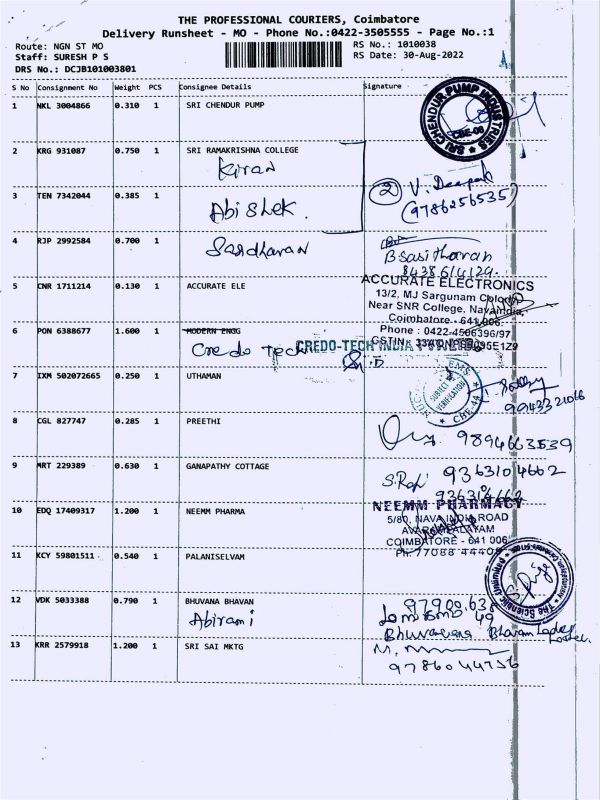 THE PROFESSIONAL COURIERS, Coimbatore
Delivery Runsheet - MO - Phone No.:0422-3505555 - Page No.:1
Route: NGN ST MO
RS No.: 1010038
Staff: SURESH P S
RS Date: 30-Aug-2022
DRS No.: DCJB101003801
S No Consignment No Weight PCS Consignee Details Signature
1 NKL 3004866 0.310 1 SRI CHENDUR PUMP
SRI CHENDUR PUMP INDUSTRIES
CBE-06
2 KRG 931087 0.750 1 SRI RAMAKRISHNA COLLEGE
Kiran
3 TEN 7342044 0.385 1
Abishek.
2 V. Deepak
(9786256535)
4 RJP 2992584 0.700 1
Sasidharan
B Sasitharan
5 CNR 1711214 0.130 1 ACCURATE ELE
ACCURATE ELECTRONICS
13/2, MJ Sargunam Colony
Near SNR College, Navaindia,
Coimbatore - 641 006.
Phone : 0422-4506396/97
6 PON 6388677 1.600 1 MODERN ENGG
Credo Tech
CREDO-TECH INDIA
7 IXM 502072665 0.250 1 UTHAMAN
SUBJECT TO VERIFICATION
CBE-44
9943321066
8 CGL 827747 0.285 1 PREETHI
9894663539
9 MRT 229389 0.630 1 GANAPATHY COTTAGE
9363104662
10 EDQ 17409317 1.200 1 NEEMM PHARMA
NEEMM PHARMACY
5/80, NAVA INDIA ROAD
AVARAMPALAYAM
COIMBATORE - 641 006
Ph: 77088 44405
11 KCY 59801511 0.540 1 PALANISELVAM
The Scientific Unlimited
12 VDK 5033388 0.790 1 BHUVANA BHAVAN
Abirami
Bhuvana Bhavan Ladies
hostel.
13 KRR 2579918 1.200 1 SRI SAI MKTG
9786044756